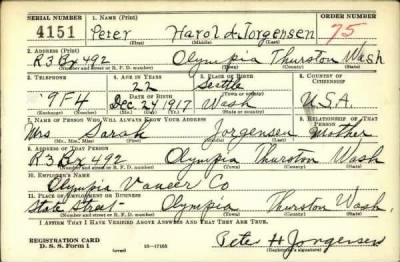 SERIAL NUMBER 1. NAME (Print) ORDER NUMBER
4151 Peter Harol A. Jorgensen 75
(First) (Middle) (Last)
2. ADDRESS (Print)
R3 Bx 492 Olympia Thurston Wash
(Number and street or R. F. D. number) (Town) (County) (State)
3. TELEPHONE 4. AGE IN YEARS 5. PLACE OF BIRTH 6. COUNTRY OF CITIZENSHIP
22 Seattle
9F4 DATE OF BIRTH (Town or county)
Dec 24 1917 Wash U.S.A.
(Exchange) (No.) (Mo.) (Day) (Yr.) (State or country)
7. NAME OF PERSON WHO WILL ALWAYS KNOW YOUR ADDRESS 8. RELATIONSHIP OF THAT PERSON
Mrs Sarah Jorgensen Mother
(Mr., Mrs., Miss) (First) (Middle) (Last)
9. ADDRESS OF THAT PERSON
R3 Bx 492 Olympia Thurston Wash
(Number and street or R. F. D. number) (Town) (County) (State)
10. EMPLOYER'S NAME
Olympia Vaneer Co
11. PLACE OF EMPLOYMENT OR BUSINESS
State Street Olympia Thurston Wash.
(Number and street or R. F. D. number) (Town) (County) (State)
I AFFIRM THAT I HAVE VERIFIED ABOVE ANSWERS AND THAT THEY ARE TRUE.
REGISTRATION CARD
D. S. S. Form 1 16—17105 Peter H Jorgensen
(over) (Registrant's signature)